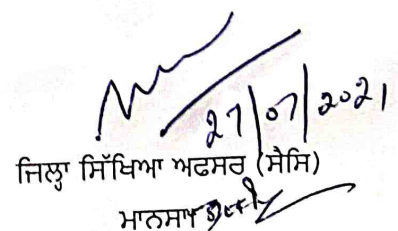 27/07/2021
ਜਿਲ੍ਹਾ ਸਿੱਖਿਆ ਅਫਸਰ (ਸੈਸਿ)
ਮਾਨਸਾ